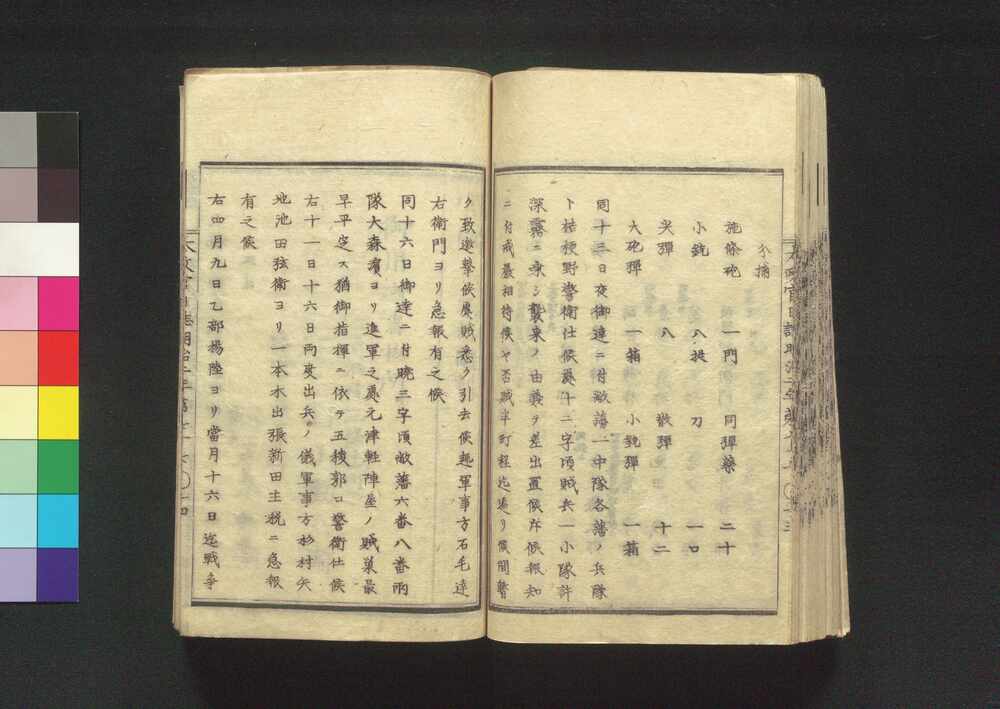 分捕
施條砲 一門 同彈藥 二十
小銃 八挺 刀 一口
尖彈 八 散彈 十二
大砲彈 一箱 小銃彈 一箱
同十三日夜御達ニ付敝藩一中隊各藩ノ兵隊
ト桔梗野警衛仕候處十二字頃賊兵一小隊許
深霧ニ乘シ襲来ノ由義ヲ差出置候斥候報知
ニ付戒嚴相待候ヤ否賊半町程迄進リ候間
ク致邀擊候處賊悉ク引去候趣軍事方石毛達
右衛門ヨリ急報有之候
同十六日御達ニ付曉三字頃敝藩六番八番兩
隊大森濱ヨリ進軍之處元津軽陣屋ノ賊巢最
早平定ス猶御指揮ニ依テ五稜郭口警衛仕候
右十一日十六日両度出兵ノ儀軍事方杉村矢
池田弦衛ヨリ一本木出張新田主税ニ急報
有之候
右四月九日乙部揚陸ヨリ當月十六日迄戦争